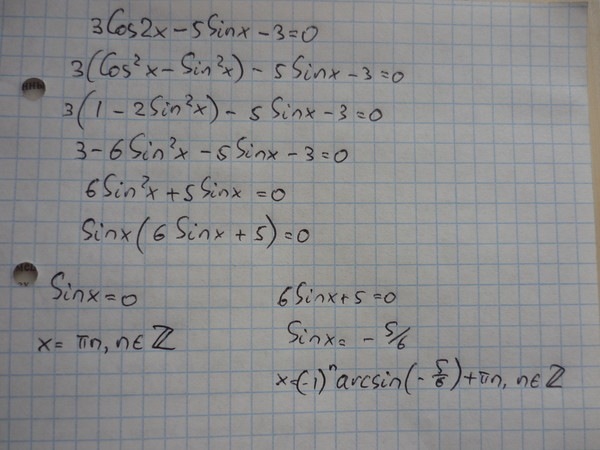 3Cos2x - 5Sinx - 3 = 0
3(Cos²x - Sin²x) - 5Sinx - 3 = 0
3(1 - 2Sin²x) - 5Sinx - 3 = 0
3 - 6Sin²x - 5Sinx - 3 = 0
6Sin²x + 5Sinx = 0
Sinx(6Sinx + 5) = 0
Sinx = 0
x = πn, n∈ℤ
6Sinx + 5 = 0
Sinx = - 5/6
x = (-1)ⁿ arcsin(-5/6) + πn, n∈ℤ